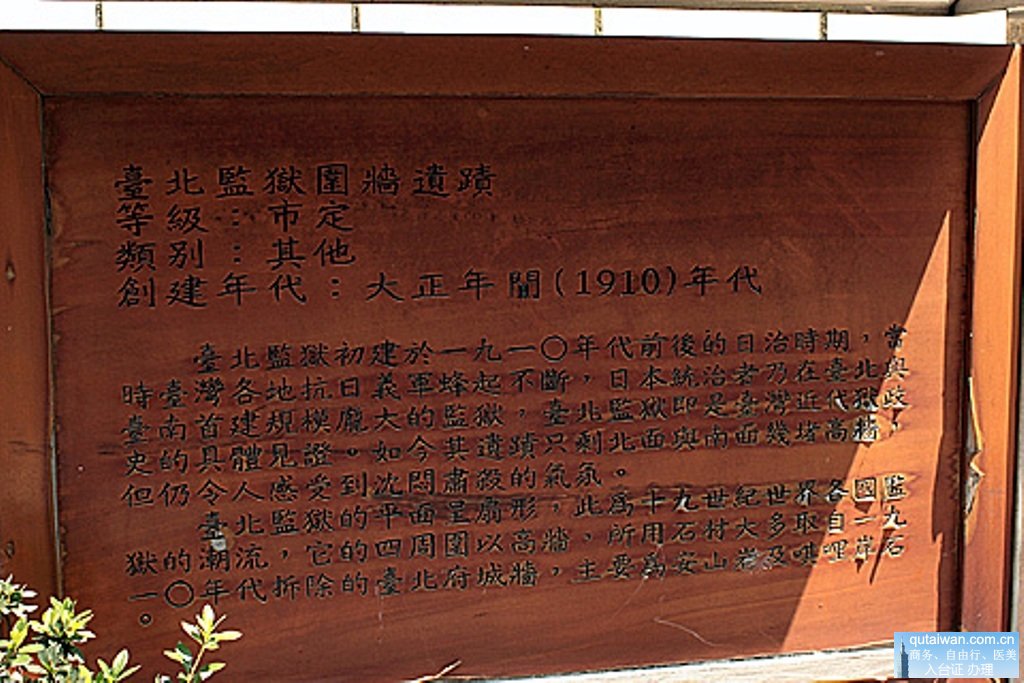 臺北監獄圍牆遺蹟
等級：市定
類別：其他
創建年代：大正年間(1910)年代
臺北監獄初建於一九一〇年代前後的日治時期，當
時臺灣各地抗日義軍蜂起不斷，日本統治者乃在臺北與
臺南首建規模龐大的監獄，臺北監獄即是臺灣近代獄政
史的具體見證。如今其遺蹟只剩北面與南面幾堵高牆，
但仍令人感受到沈悶肅殺的氣氛。
臺北監獄的平面呈扇形，此為十九世紀世界各國監
獄的潮流，它的四周圍以高牆，所用石材大多取自一九
一〇年代拆除的臺北府城牆，主要為安山岩及唭哩岸石
。
qutaiwan.com.cn
商务、自由行、医美
入台证 办理